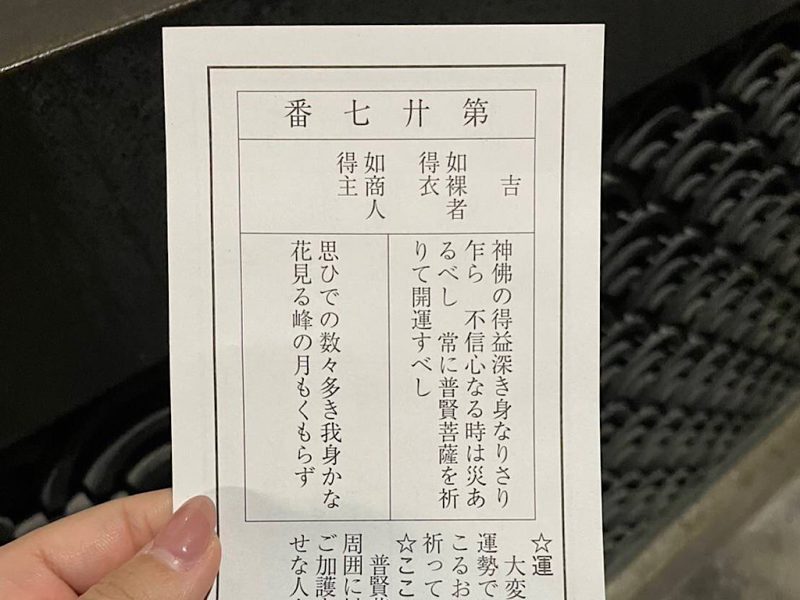 第廿七番
吉
如裸者
得衣
如商人
得主
神佛の得益深き身なりさり
乍ら 不信心なる時は災あ
るべし 常に普賢菩薩を祈
りて開運すべし
思ひでの数々多き我身かな
花見る峰の月もくもらず
☆運
大変
運勢で
こるお
祈って
☆ここ
普賢菩
周囲に
ご加護
せな人